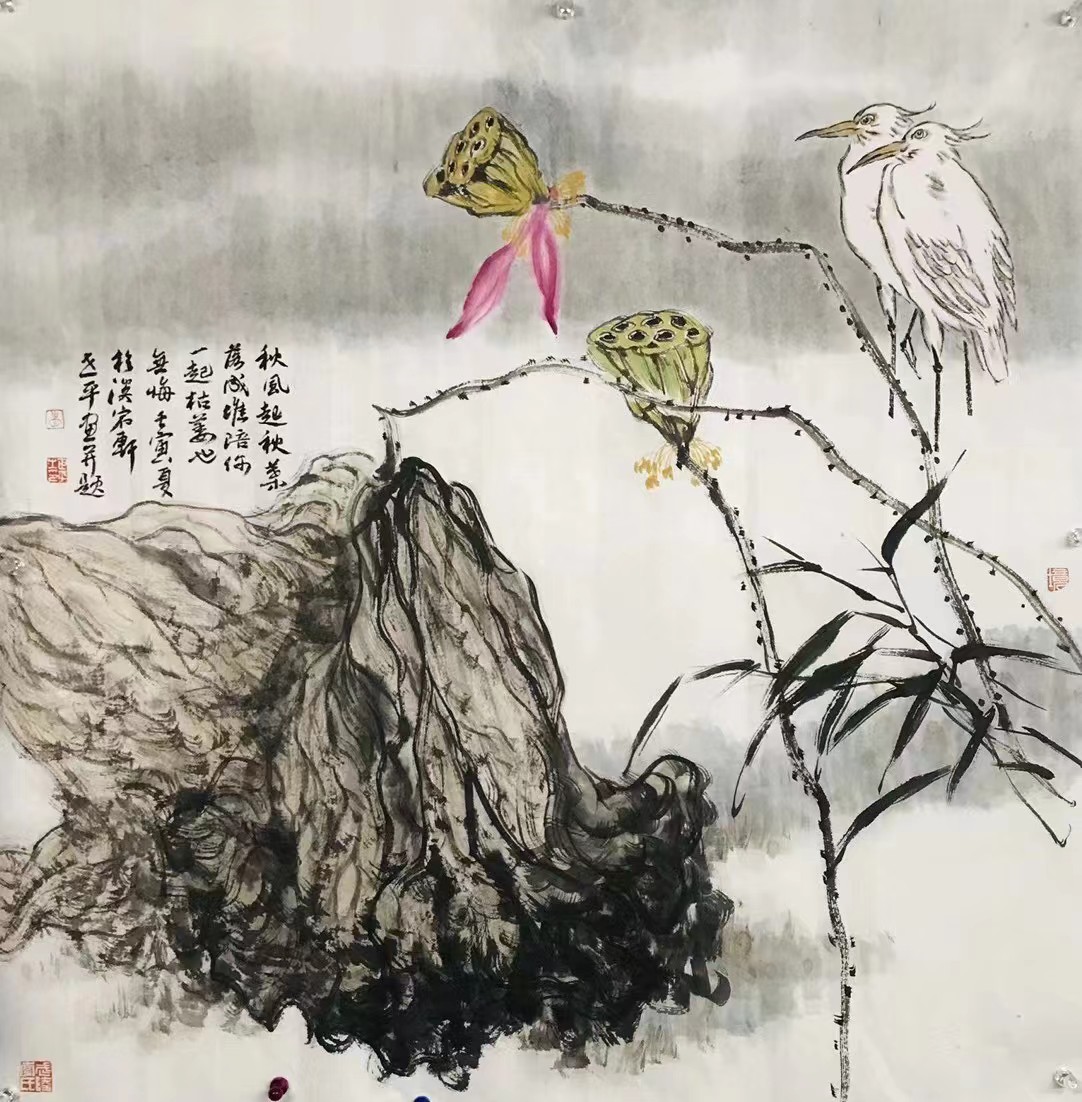 秋風起秋葉
落成堆陪你
一起枯萎也
無悔壬寅夏
於溪宕軒
志平畫并題